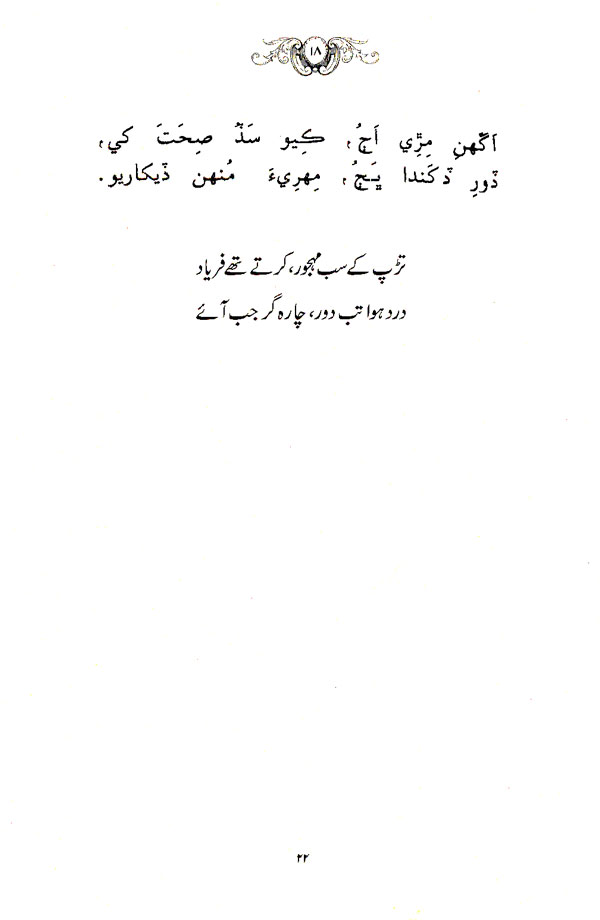 ۱۸
اَگهنِ مِڙِي اَڄُ، ڪِيو سَڏُ صِحَتَ کي،
ڏورِ ڏکَندا ڀَڄُ، مِهرِيءَ مُنهن ڏيکاريو.
تڑپ کے سب مہجور، کرتے تھے فریاد
درد ہوا تب دور، چارہ گر جب آئے
۲۲